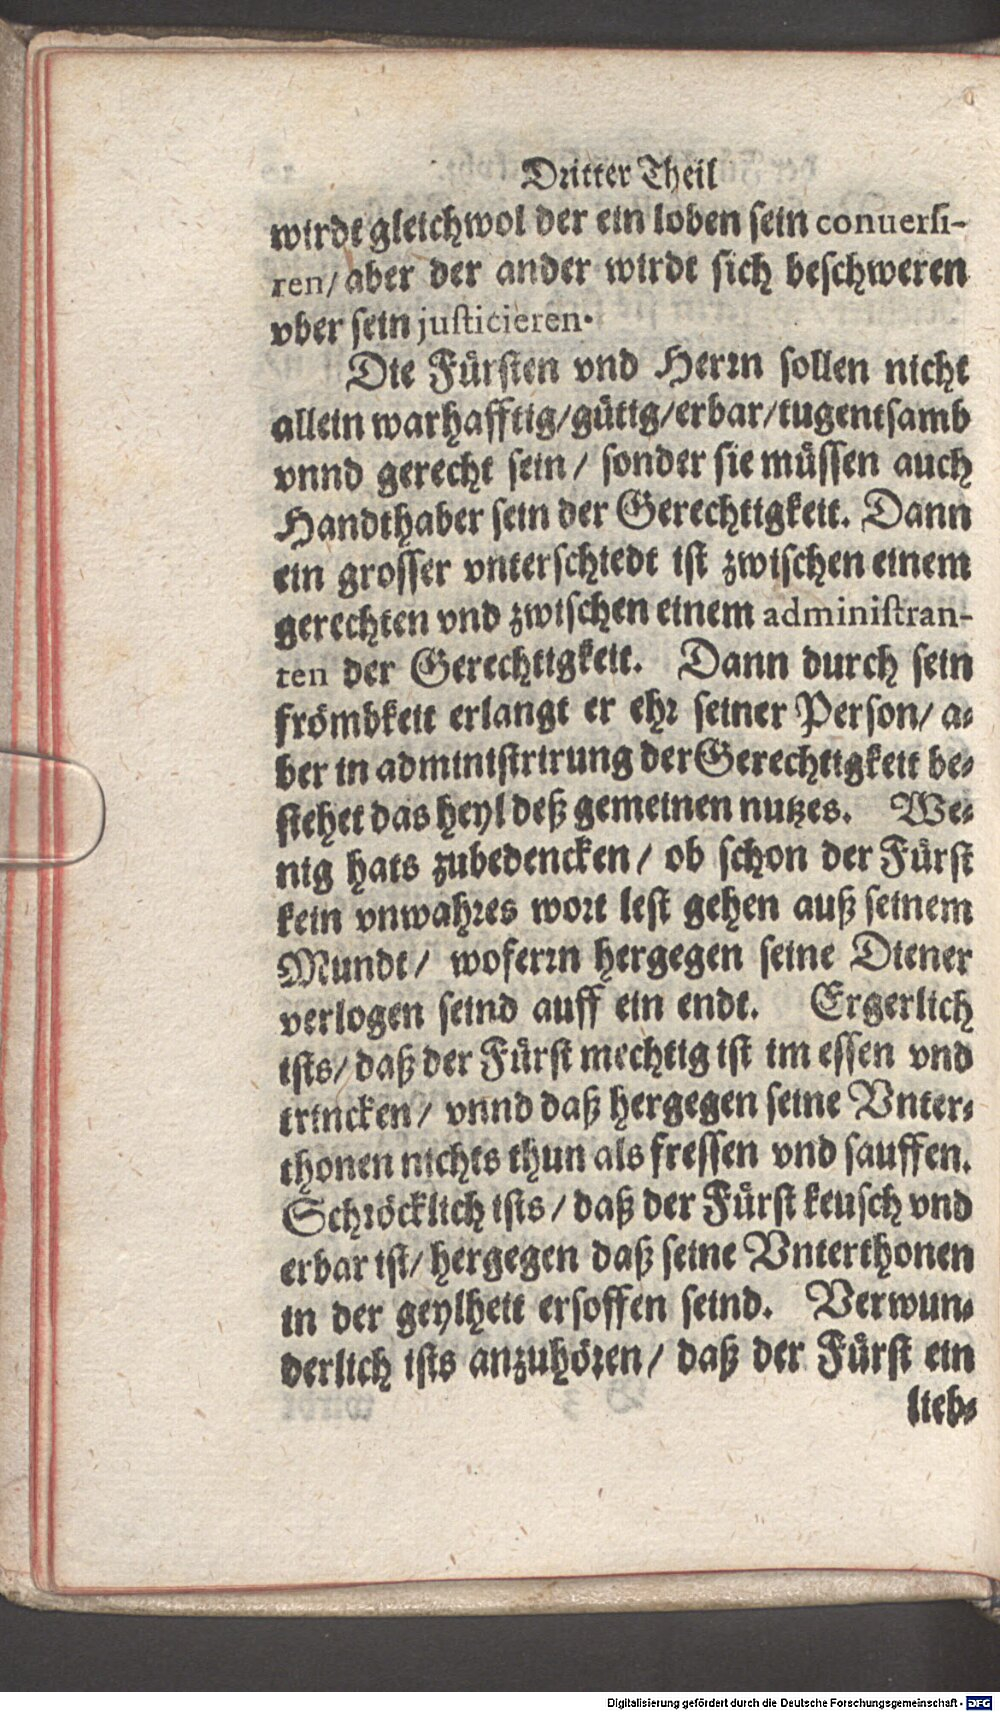 Dritter Theil
wirdt gleichwol der ein loben sein conuersi-
ren/ aber der ander wirdt sich beschweren
vber sein justicieren.
Die Fürsten vnd Herrn sollen nicht
allein warhafftig/ gütig/ erbar/ tugentsamb
vnnd gerecht sein/ sonder sie müssen auch
Handthaber sein der Gerechtigkeit. Dann
ein grosser vnterschiedt ist zwischen einem
gerechten vnd zwischen einem administran-
ten der Gerechtigkeit. Dann durch sein
frömbkeit erlangt er ehr seiner Person/ a-
ber in administrirung der Gerechtigkeit be-
stehet das heyl deß gemeinen nutzes. We-
nig hats zubedencken/ ob schon der Fürst
kein vnwahres wort lest gehen auß seinem
Mundt/ woferrn hergegen seine Diener
verlogen seind auff ein endt. Ergerlich
ists/ daß der Fürst mechtig ist im essen vnd
trincken/ vnnd daß hergegen seine Vnter-
thonen nichts thun als fressen vnd sauffen.
Schröcklich ists/ daß der Fürst keusch vnd
erbar ist/ hergegen daß seine Vnterthonen
in der geylheit ersoffen seind. Verwun-
derlich ists anzuhören/ daß der Fürst ein
lieb-
Digitalisierung gefördert durch die Deutsche Forschungsgemeinschaft - DFG